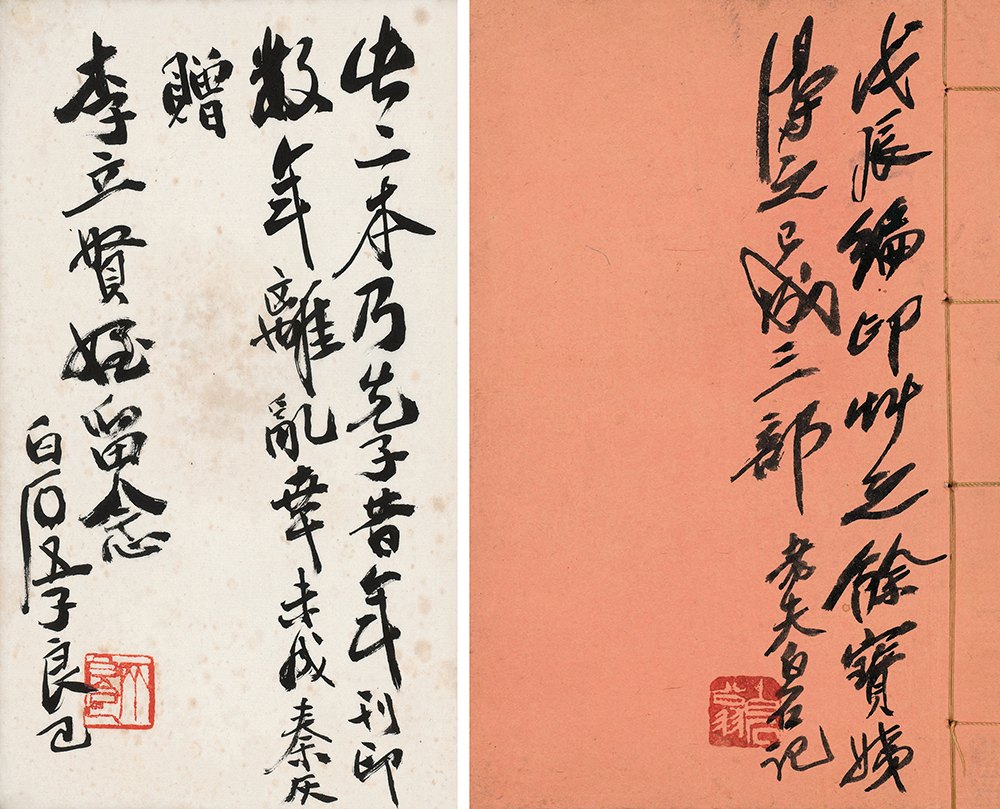 此二本乃先子昔年刊印
数年離亂幸未成秦灰
贈
李立賢姪留念
白石五子良已
戊辰編印艸之餘寶姝
得之已成三部
老夫白石記